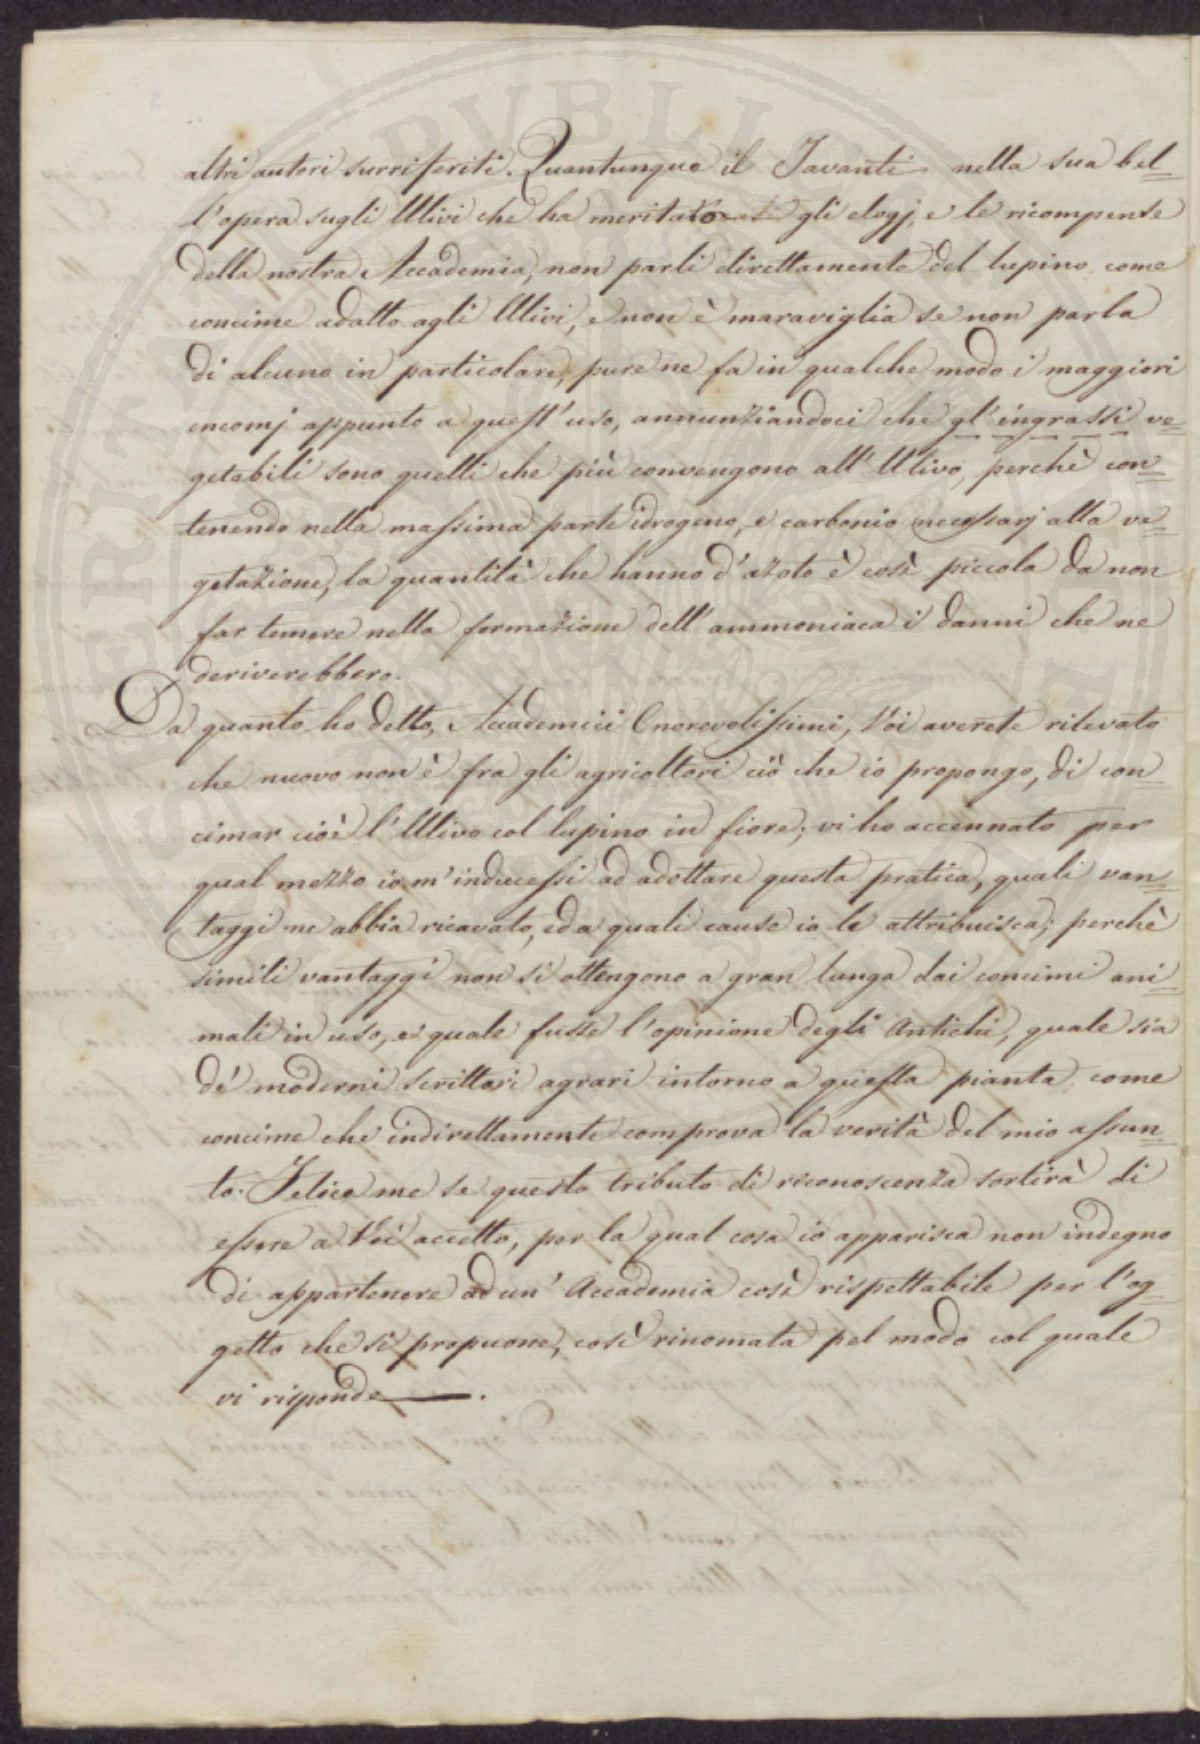 altri autori surriferiti. Quantunque il Tavanti nella sua bel=
l'opera sugli Ulivi che ha meritato gli elogj, e le ricompense
della nostra Accademia, non parli direttamente del lupino come
concime adatto agli Ulivi, e non è maraviglia se non parla
di alcuno in particolare, pure ne fa in qualche modo i maggiori
encomj appunto a quest'uso, annunziandoci che gl'ingrassi ve=
getabili sono quelli che più convengono all'Ulivo, perchè con=
tenendo nella massima parte idrogeno, e carbonio necessarj alla ve=
getazione, la quantità che hanno d'azoto è così piccola da non
far temere nella formazione dell'ammoniaca i danni che ne
deriverebbero.
Da quanto ho detto, Accademici Onorevolissimi, Voi averete rilevato
che nuovo non è fra gli agricoltori ciò che io propongo, di con=
cimar cioè l'Ulivo col lupino in fiore; vi ho accennato per
qual mezzo io m'inducessi ad adottare questa pratica, quali van=
taggi ne abbia ricavato, ed a quali cause io le attribuisca; perchè
simili vantaggi non si ottengono a gran lunga dai concimi ani=
mali in uso, e quale fusse l'opinione degli Antichi, quale sia
de' moderni scrittori agrari intorno a questa pianta come
concime che indirettamente comprova la verità del mio assun=
to. Felice me se questo tributo di riconoscenza sortirà di
essere a Voi accetto, per la qual cosa io apparisca non indegno
di appartenere ad un' Accademia così rispettabile per l'og=
getto che si propuone, così rinomata pel modo col quale
vi risponde.